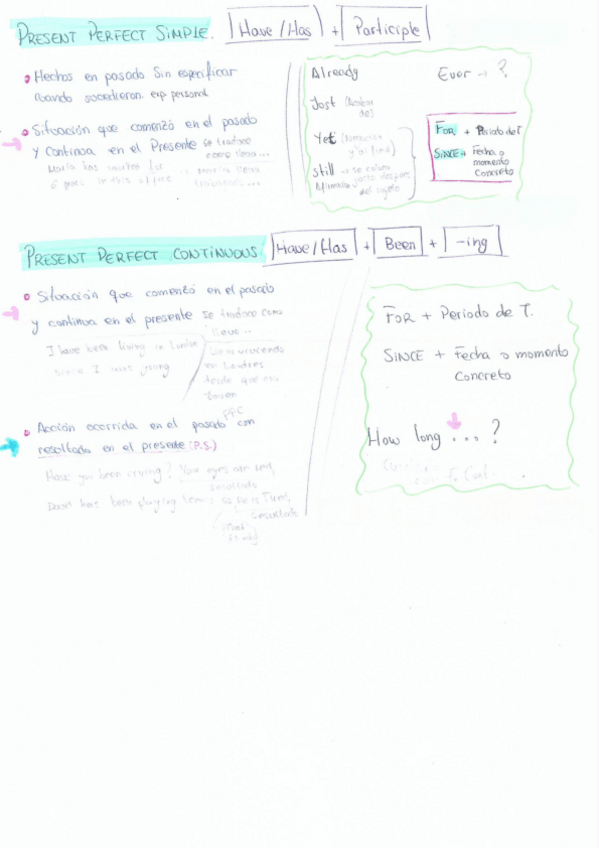 PRESENT PERFECT SIMPLE. Have/Has + Participle
Hechos en pasado Sin especificar
cuando sucedieron. exp personal
Situación que comenzó en el pasado
y Continua en el Presente se traduce
como lleva...
María has worked for
in this office
Already
Just
Yet
Still → se coloca
justo despues
del sujeto
Ever → ?
FOR + Periodo de T.
SINCE + Fecha o
momento
Concreto
PRESENT PERFECT CONTINUOUS. Have/Has + Been + -ing
Situación que comenzó en el pasado
y continua en el presente se traduce como
lleva..
I have been living in London
since I was young
en Londres
desde que era
joven
PPC
Acción ocurrida en el pasado con
resultado en el presente (P.S.)
Have you been crying? Your eyes are red,
resultado
been playing tennis so he is tired,
resultado
FOR + Periodo de T.
SINCE + Fecha o momento
Concreto
How long ... ?